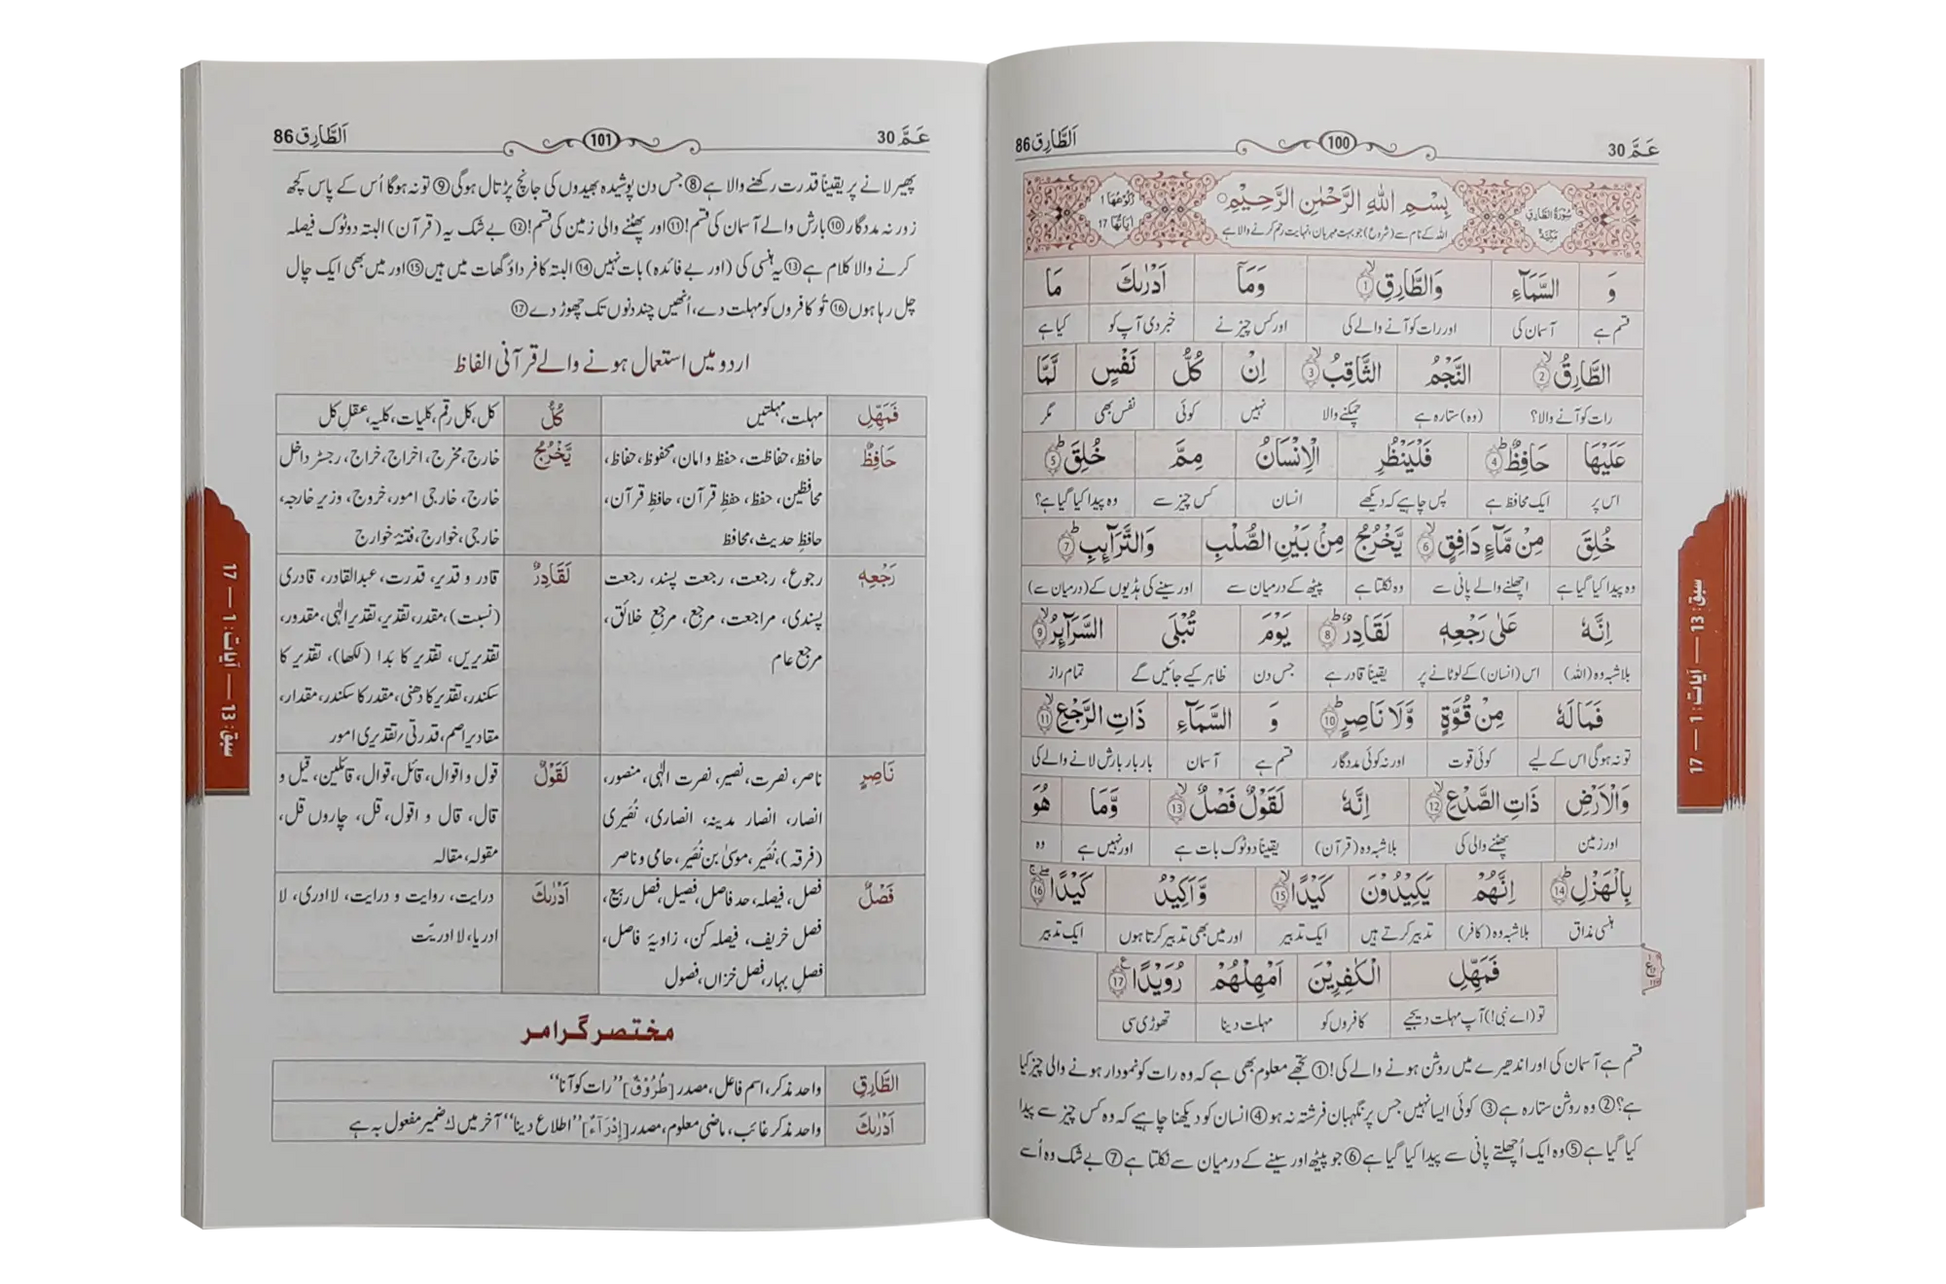 عَمَّ 30
100
اَلطَّارِق 86
سُوْرَةُ الطَّارِقِ مَكِّيَّةٌ
بِسْمِ اللّٰهِ الرَّحْمٰنِ الرَّحِيْمِ
اللہ کے نام سے (شروع) جو بہت مہربان، نہایت رحم کرنے والا ہے
رُكُوْعُهَا 1
اٰيَاتُهَا 17
وَ السَّمَآءِ وَالطَّارِقِ ① وَمَآ اَدْرٰىكَ مَا
قسم ہے آسمان کی اور رات کو آنے والے کی اور کس چیز نے خبر دی آپ کو کیا ہے
الطَّارِقُ ② النَّجْمُ الثَّاقِبُ ③ اِنْ كُلُّ نَفْسٍ لَّمَّا
رات کو آنے والا؟ (وہ) ستارہ ہے چمکنے والا نہیں کوئی نفس بھی مگر
عَلَيْهَا حَافِظٌ ④ فَلْيَنْظُرِ الْاِنْسَانُ مِمَّ خُلِقَ ⑤
اس پر ایک محافظ ہے پس چاہیے کہ دیکھے انسان کس چیز سے وہ پیدا کیا گیا ہے؟
خُلِقَ مِنْ مَّآءٍ دَافِقٍ ⑥ يَّخْرُجُ مِنْۢ بَيْنِ الصُّلْبِ وَالتَّرَآىِٕبِ ⑦
وہ پیدا کیا گیا ہے اچھلنے والے پانی سے وہ نکلتا ہے پیٹھ کے درمیان سے اور سینے کی ہڈیوں کے (درمیان سے)
اِنَّهٗ عَلٰى رَجْعِهٖ لَقَادِرٌ ⑧ يَوْمَ تُبْلَى السَّرَآىِٕرُ ⑨
بلاشبہ وہ (اللہ) اس (انسان) کے لوٹانے پر یقیناً قادر ہے جس دن ظاہر کیے جائیں گے تمام راز
فَمَا لَهٗ مِنْ قُوَّةٍ وَّلَا نَاصِرٍ ⑩ وَ السَّمَآءِ ذَاتِ الرَّجْعِ ⑪
تو نہ ہوگی اس کے لیے کوئی قوت اور نہ کوئی مددگار قسم ہے آسمان بار بار بارش لانے والے کی
وَالْاَرْضِ ذَاتِ الصَّدْعِ ⑫ اِنَّهٗ لَقَوْلٌ فَصْلٌ ⑬ وَّمَا هُوَ
اور زمین پھٹنے والی کی بلاشبہ وہ (قرآن) یقیناً دوٹوک بات ہے اور نہیں ہے وہ
بِالْهَزْلِ ⑭ اِنَّهُمْ يَكِيْدُوْنَ كَيْدًا ⑮ وَّاَكِيْدُ كَيْدًا ⑯
ہنسی مذاق بلاشبہ وہ (کافر) تدبیر کرتے ہیں ایک تدبیر اور میں بھی تدبیر کرتا ہوں ایک تدبیر
فَمَهِّلِ الْكٰفِرِيْنَ اَمْهِلْهُمْ رُوَيْدًا ⑰
تو (اے نبی!) آپ مہلت دیجیے کافروں کو مہلت دینا تھوڑی سی
قسم ہے آسمان کی اور اندھیرے میں روشن ہونے والے کی! ① تجھے معلوم بھی ہے کہ وہ رات کو نمودار ہونے والی چیز کیا
ہے؟ ② وہ روشن ستارہ ہے ③ کوئی ایسا نہیں جس پر نگہبان فرشتہ نہ ہو ④ انسان کو دیکھنا چاہیے کہ وہ کس چیز سے پیدا
کیا گیا ہے ⑤ وہ ایک اُچھلتے پانی سے پیدا کیا گیا ہے ⑥ جو پیٹھ اور سینے کے درمیان سے نکلتا ہے ⑦ بے شک وہ اُسے
سبق: 13 — آیات: 1 — 17
عَمَّ 30
101
اَلطَّارِق 86
پھیر لانے پر یقیناً قدرت رکھنے والا ہے ⑧ جس دن پوشیدہ بھیدوں کی جانچ پڑتال ہوگی ⑨ تو نہ ہوگا اُس کے پاس کچھ
زور نہ مددگار ⑩ بارش والے آسمان کی قسم! ⑪ اور پھٹنے والی زمین کی قسم! ⑫ بے شک یہ (قرآن) البتہ دوٹوک فیصلہ
کرنے والا کلام ہے ⑬ یہ ہنسی کی (اور بے فائدہ) بات نہیں ⑭ البتہ کافر داؤ گھات میں ہیں ⑮ اور میں بھی ایک چال
چل رہا ہوں ⑯ تُو کافروں کو مہلت دے، اُنھیں چند دنوں تک چھوڑ دے ⑰
اردو میں استعمال ہونے والے قرآنی الفاظ
فَمَهِّلِ مہلت، مہلتیں كُلُّ کل، کل رقم، کلیات، کلیہ، عقلِ کل
حَافِظٌ حافظ، حفاظت، حفظ و امان، محفوظ، حفاظ، يَّخْرُجُ خارج، مخرج، اخراج، خراج، رجسٹر داخل
محافظین، حفظ، حفظِ قرآن، حافظِ قرآن، خارج، خارجی امور، خروج، وزیر خارجہ،
حافظِ حدیث، محافظ خارجی، خوارج، فتنۂ خوارج
رَجْعِهٖ رجوع، رجعت، رجعت پسند، رجعت لَقَادِرٌ قادر و قدیر، قدرت، عبدالقادر، قادری
پسندی، مراجعت، مرجع، مرجعِ خلائق، (نسبت)، مقدر، تقدیر، تقدیر الٰہی، مقدور،
مرجع عام تقدیریں، تقدیر کا بَدا (لکھا)، تقدیر کا
سکندر، تقدیر کا دھنی، مقدر کا سکندر، مقدار،
مقادیر اصم، قدرتی / تقدیری امور
نَاصِرٍ ناصر، نصرت، نصیر، نصرت الٰہی، منصور، لَقَوْلٌ قول و اقوال، قائل، قوال، قائلین، قیل و
انصار، انصار مدینہ، انصاری، نُصَیری قال، قال و اقول، قل، چاروں قل،
(فرقہ)، نُصَیر، موسیٰ بن نُصَیر، حامی و ناصر مقولہ، مقالہ
فَصْلٌ فصل، فیصلہ، حد فاصل، فصیل، فصل ربیع، اَدْرٰىكَ درایت، روایت و درایت، لا ادری، لا
فصل خریف، فیصلہ کن، زاویۂ فاصل، ادریا، لا ادریّت
فصلِ بہار، فصل خزاں، فصول
مختصر گرامر
الطَّارِقِ واحد مذکر، اسم فاعل، مصدر [طُرُوْقٌ] ”رات کو آنا“
اَدْرٰىكَ واحد مذکر غائب، ماضی معلوم، مصدر [اِدْرَاءٌ] ”اطلاع دینا“ آخر میں كَ ضمیر مفعول بہ ہے
سبق: 13 — آیات: 1 — 17